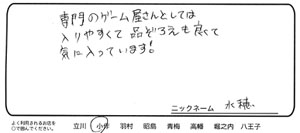 専門のゲーム屋さんとしては
入りやすくて品ぞろえも良くて
気に入っています!
ニックネーム 水穂
よく利用されるお店を
○で囲んでください。
立川 小作 羽村 昭島 青梅 高幡 堀之内 八王子